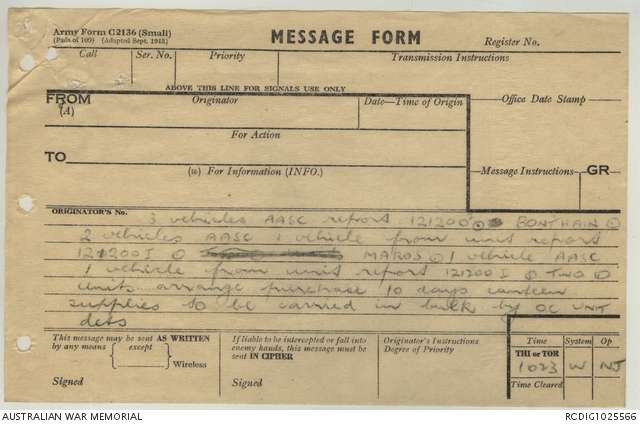 Army Form C2136 (Small)
(Pads of 100) (Adapted Sept. 1943)
MESSAGE FORM
Register No.
Call Ser. No. Priority Transmission Instructions
ABOVE THIS LINE FOR SIGNALS USE ONLY
FROM
(A)
Originator
Date—Time of Origin
Office Date Stamp
For Action
TO
(w) For Information (INFO.)
Message Instructions GR
ORIGINATOR'S No.
3 vehicles AASC report 121200 ⊙ BONTHAIN ⊙
2 vehicles AASC 1 vehicle from unit report
121200I ⊙ MAROS ⊙ 1 vehicle AASC
1 vehicle from unit report 121200I ⊙ TWO ⊙
Units arrange purchase 10 days canteen
supplies to be carried in bulk by OC UNIT
dets
This message may be sent AS WRITTEN
by any means except
Wireless
Signed
If liable to be intercepted or fall into
enemy hands, this message must be
sent IN CIPHER
Signed
Originator's Instructions
Degree of Priority
Time System Op
THI or TOR
1023 W NJ
Time Cleared
AUSTRALIAN WAR MEMORIAL
RCDIG1025566